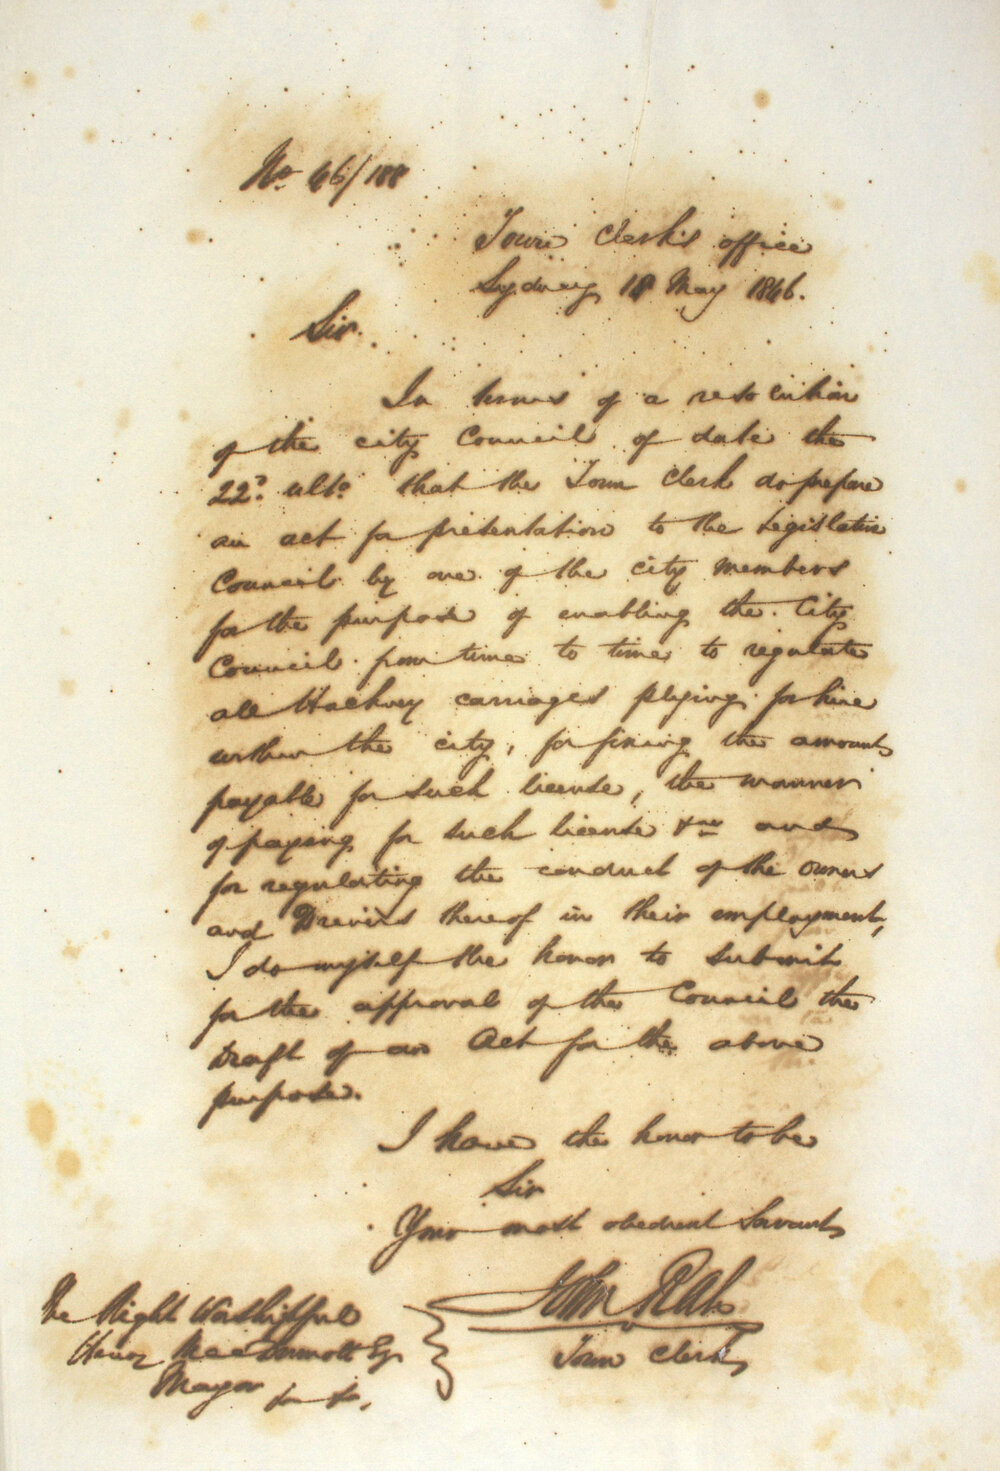 No 46/188
Town Clerk's office
Sydney 18 May 1846.
Sir.
In terms of a resolution
of the city Council of date the
22d. ulto that the Town Clerk do prepare
an act for presentation to the Legislative
Council by one of the city members
for the purpose of enabling the City
Council from time to time to regulate
all Hackney carriages plying for hire
within the city, for fixing the amounts
payable for such license, the manner
of paying for such license and
for regulating the conduct of the owners
and Drivers thereof in their employment,
I do myself the honor to submit
for the approval of the Council the
Draft of an Act for the above
purpose.
I have the honor to be
Sir
Your most obedient Servant
John Rae
Town Clerk
The Right Worshipful
Henry MacDermott Esqr
Mayor